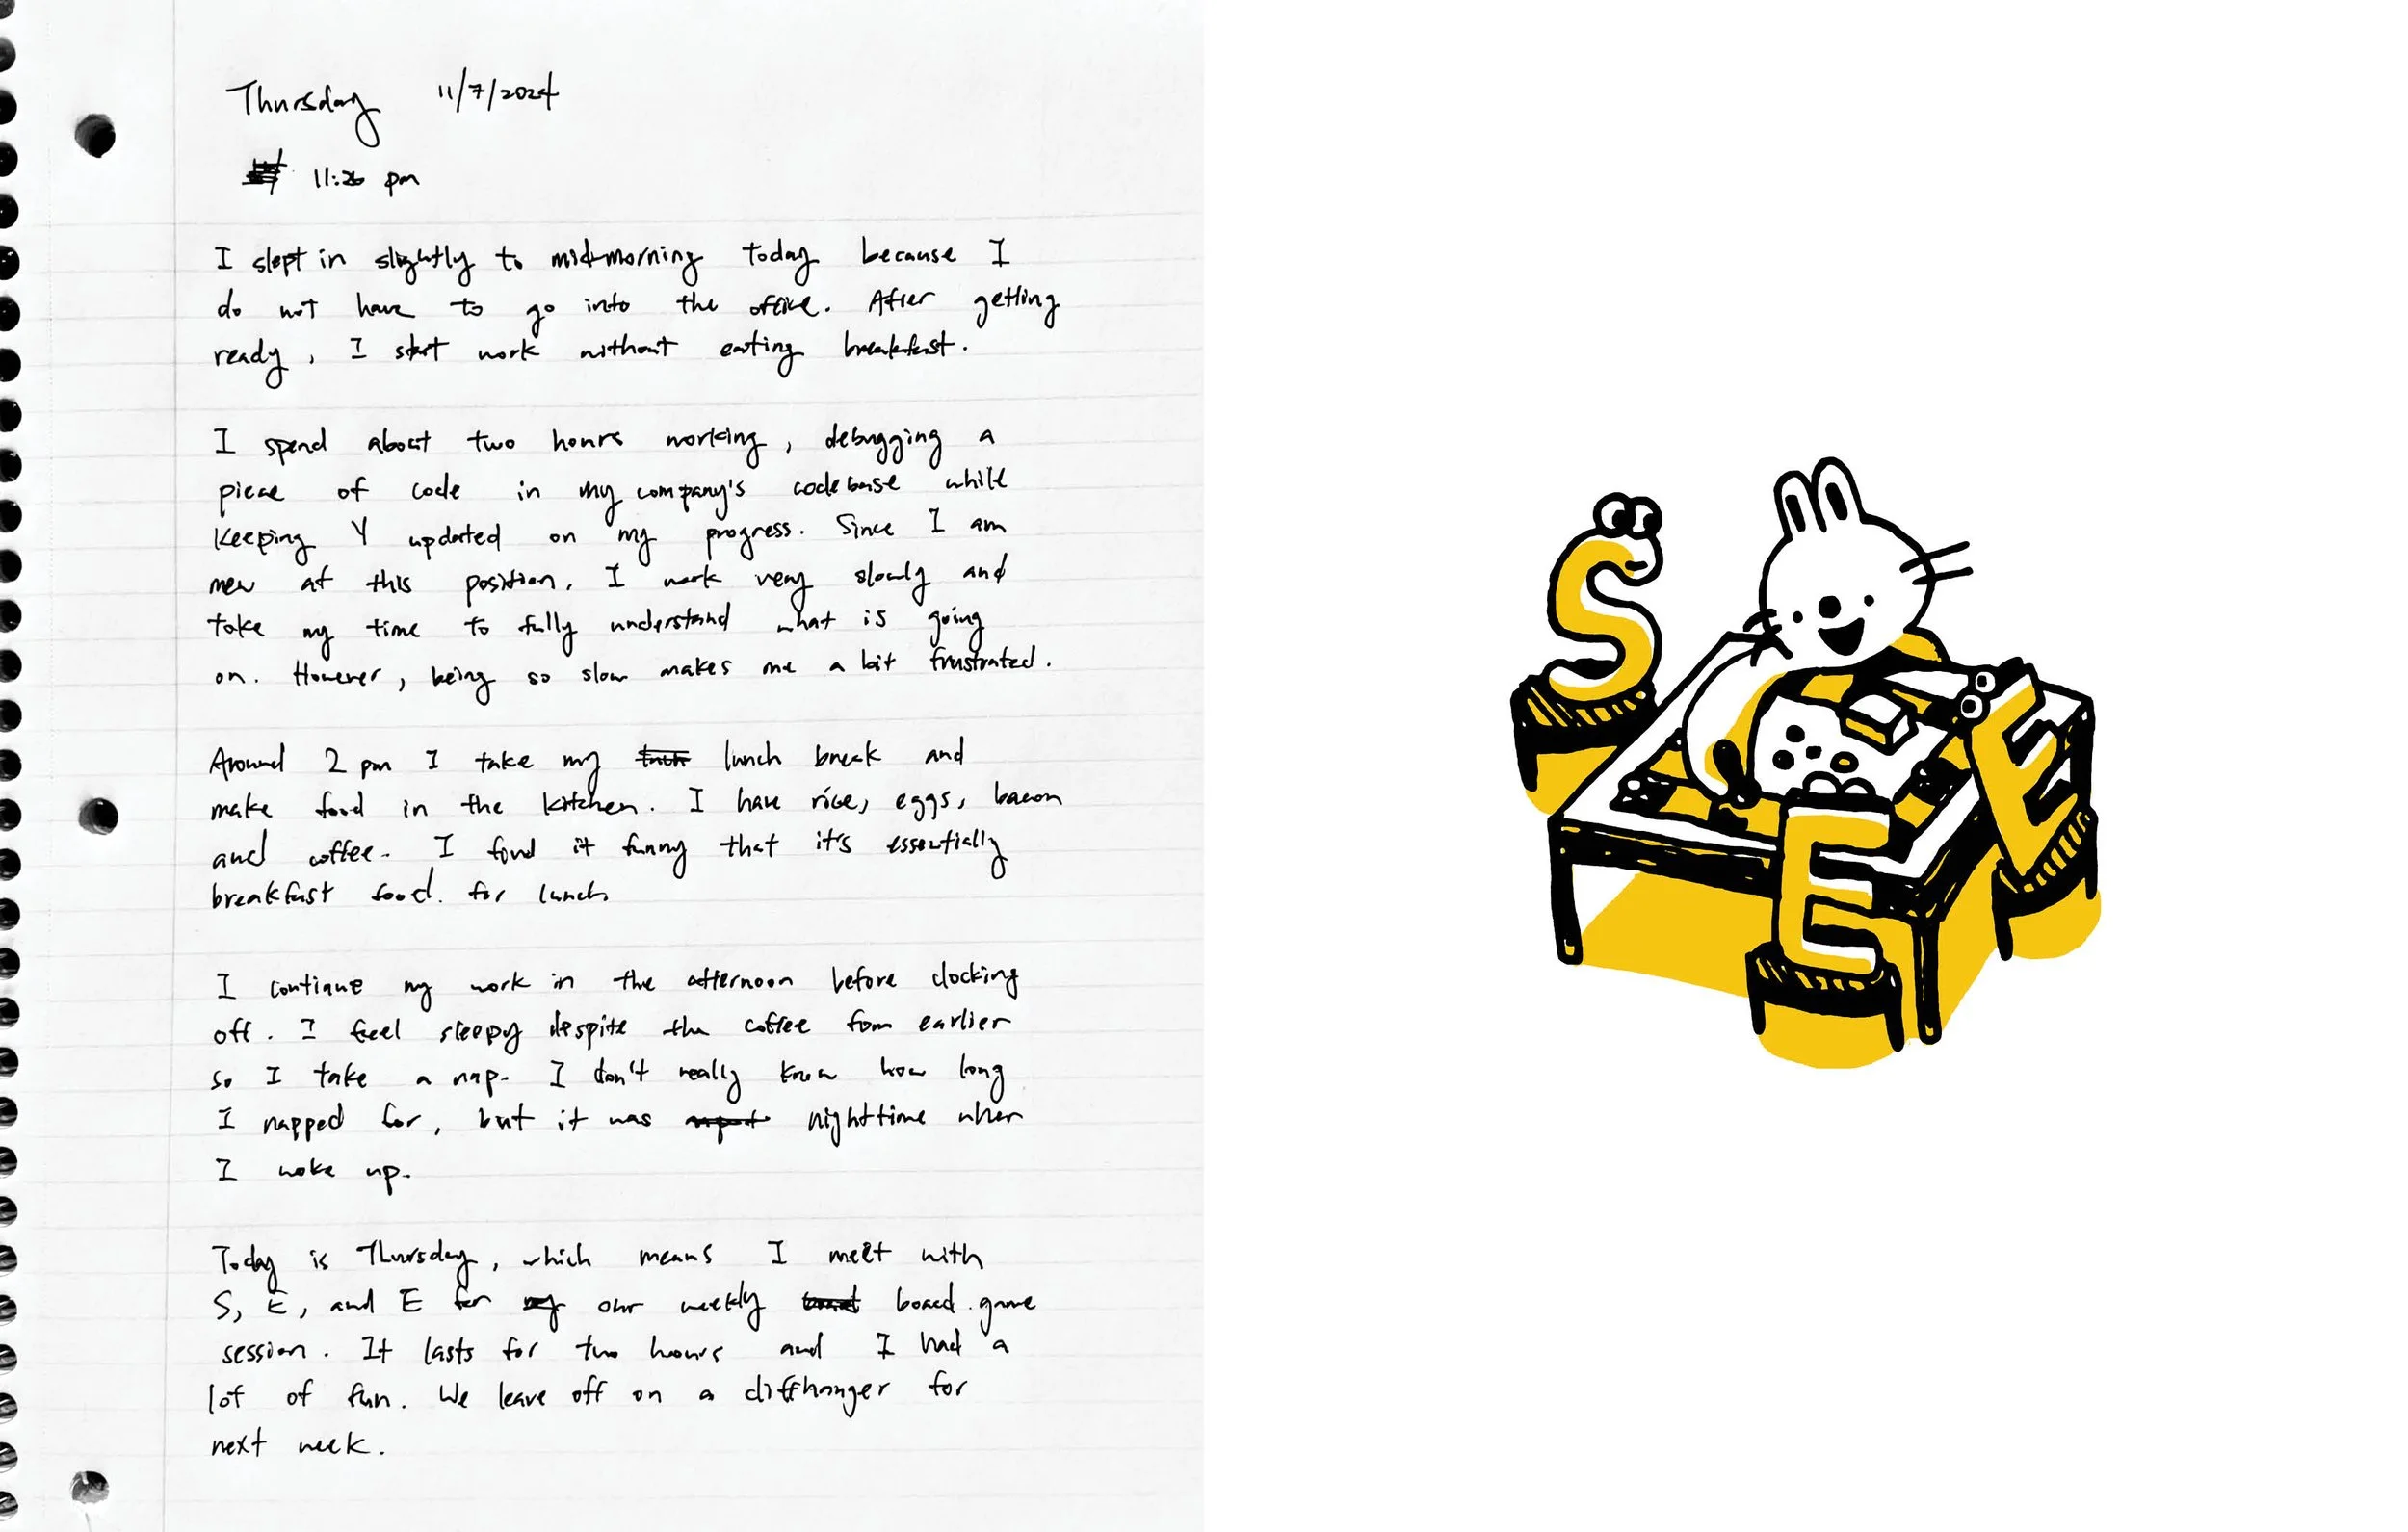 Thursday 11/7/2024
11:26 pm
I slept in slightly to mid-morning today because I
do not have to go into the office. After getting
ready, I start work without eating breakfast.
I spend about two hours working, debugging a
piece of code in my company's codebase while
keeping Y updated on my progress. Since I am
new at this position, I work very slowly and
take my time to fully understand what is going
on. However, being so slow makes me a bit frustrated.
Around 2 pm I take my lunch break and
make food in the kitchen. I have rice, eggs, bacon
and coffee. I find it funny that it's essentially
breakfast food. for lunch
I continue my work in the afternoon before clocking
off. I feel sleepy despite the coffee fom earlier
so I take a nap. I don't really know how long
I napped for, but it was nighttime when
I woke up.
Today is Thursday, which means I meet with
S, E, and E for our weekly board game
session. It lasts for two hours and I had a
lot of fun. We leave off on a cliffhanger for
next week.
S
E
E